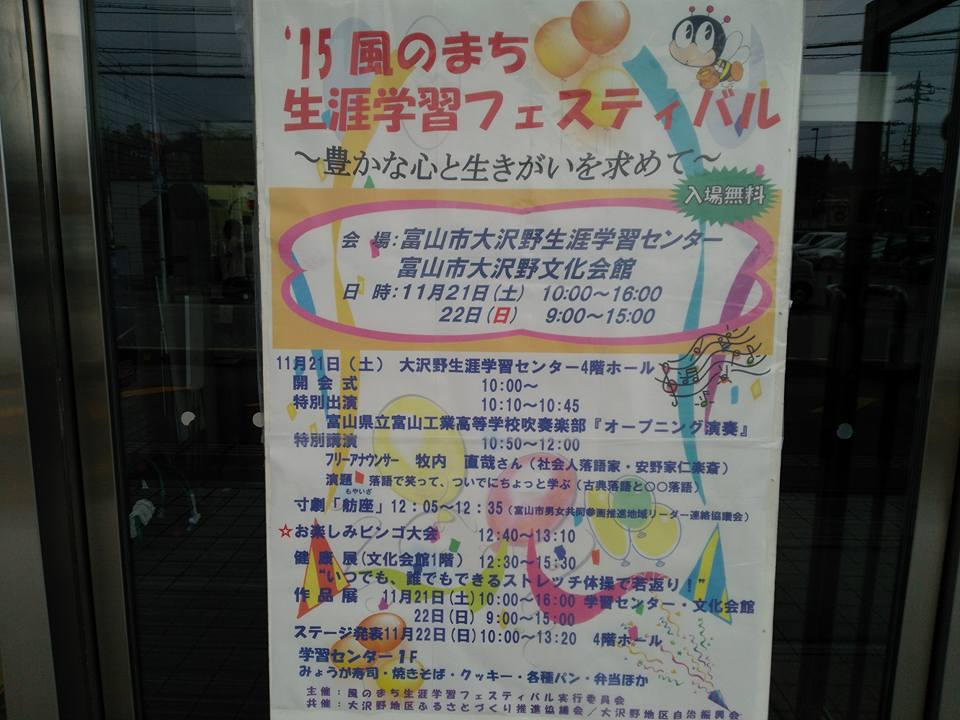 '15 風のまち
生涯学習フェスティバル
～豊かな心と生きがいを求めて～
入場無料
会 場：富山市大沢野生涯学習センター
富山市大沢野文化会館
日 時：11月21日（土） 10:00～16:00
22日（日） 9:00～15:00
11月21日（土） 大沢野生涯学習センター4階ホール
開会式 10:00～
特別出演 10:10～10:45
富山県立富山工業高等学校吹奏楽部『オープニング演奏』
特別講演 10:50～12:00
フリーアナウンサー 牧内 直哉さん（社会人落語家・安野家仁楽斎）
演題 落語で笑って、ついでにちょっと学ぶ（古典落語と〇〇落語）
もやいざ
寸劇「舫座」12：05～12：35（富山市男女共同参画推進地域リーダー連絡協議会）
☆お楽しみビンゴ大会 12:40～13:10
健康展（文化会館1階） 12:30～15:30
“いつでも、誰でもできるストレッチ体操で若返り！”
作品展 11月21日（土）10:00～16:00 学習センター・文化会館
22日（日） 9:00～15:00
ステージ発表11月22日（日）10:00～13:20 4階ホール
学習センター1F
みょうが寿司・焼きそば・クッキー・各種パン・弁当ほか
主催：風のまち生涯学習フェスティバル実行委員会
共催：大沢野地区ふるさとづくり推進協議会／大沢野地区自治振興会